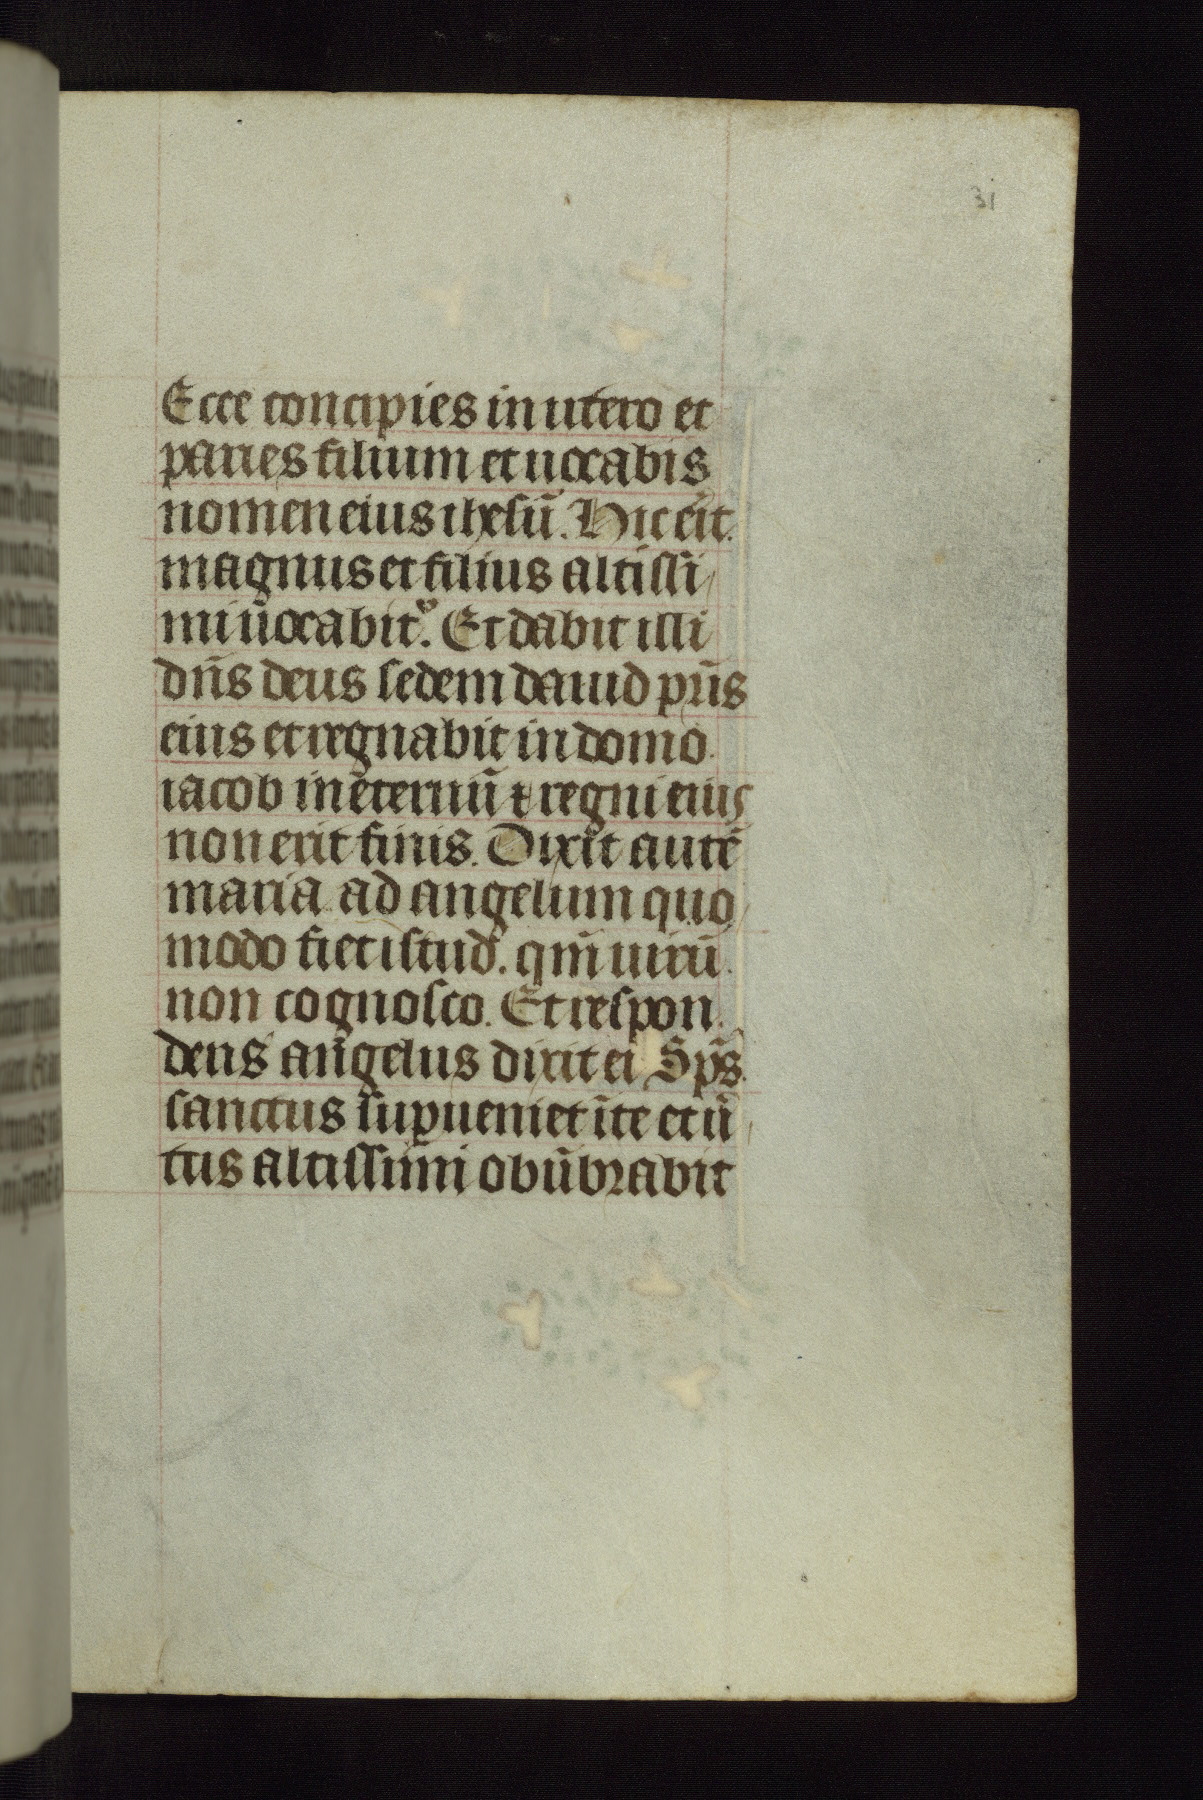 31
Ecce concipies in utero et
paries filium et uocabis
nomen eius ihesū. Hic eīt
magnus et filius altissi/
mi uocabit᷒. Et dabit illi
dn̄s deus sedem dauid pr̄is
eius et regnabit in domo
iacob in eternū ⁊ regni eius
non erit finis. Dixit autē
maria ad angelum quo/
modo fiet istud. qm̄ uirū
non cognosco. Et respon
dens angelus dixit ei Sp̄s
sanctus supueniet ī te et ū/
tus altissimi obūbrabit